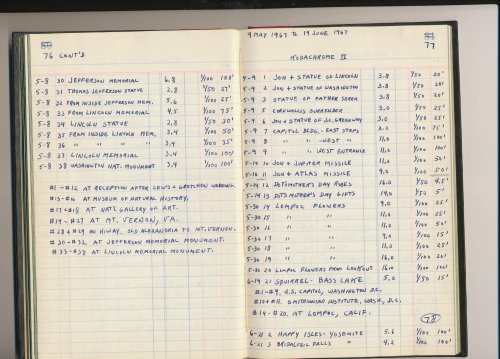 76 CONT'D
5-8 30 JEFFERSON MEMORIAL 6.8 1/100 100'
5-8 31 THOMAS JEFFERSON STATUE 2.8 1/50 27'
5-8 32 FROM INSIDE JEFFERSON MEM. 5.6 1/100 25'
5-8 33 FROM LINCOLN MEMORIAL 4.5 1/100 75'
5-8 34 LINCOLN STATUE 2.8 1/50 30'
5-8 35 FROM INSIDE LINCOLN MEM. 3.4 1/100 50'
5-8 36 " " " 3.4 1/100 35'
5-8 37 LINCOLN MEMORIAL 3.4 1/100 100'
5-8 38 WASHINGTON NAT. MONUMENT 3.4 1/100 100'
#1-#12 AT RECEPTION AFTER LOUIS + GRETCHEN WEDDING.
#13-#16 AT MUSEUM OF NATURAL HISTORY.
#17+#18 AT NAT'L GALLERY OF ART.
#19-#27 AT MT. VERNON, VA.
#28+#29 ON HIWAY, OLD ALEXANDRIA TO MT. VERNON.
#30-#32 AT JEFFERSON MEMORIAL MONUMENT.
#33-#37 AT LINCOLN MEMORIAL MONUMENT.
9 MAY 1967 TO 19 JUNE 1967
77
KODACHROME II
5-9 1 JON + STATUE OF LINCOLN 3.8 1/50 20'
5-9 2 JON + STATUE OF WASHINGTON 3.8 1/50 20'
5-9 3 STATUE OF FATHER SERRA 3.8 1/50 20'
5-9 5 CORNWALLIS SURRENDER 3.8 1/50 25'
5-9 6 JON + STATUE OF J.C. GREENWAY 3.8 1/50 25'
5-9 7 CAPITOL BLDG. - EAST STEPS 3.8 1/100 75'
5-9 8 " " - WEST " 11.0 1/100 100'
5-9 9 " " WEST ENTRANCE 11.0 1/100 100'
5-10 10 JON + JUPITER MISSILE 11.0 1/100 50'
5-10 11 JON + ATLAS MISSILE 9.0 1/100 50'
5-14 12 DOT'S MOTHER'S DAY ROSES 16.0 1/50 4.5'
5-14 13 DOT'S MOTHER'S DAY GIFTS 9.0 1/50 5'
5-30 14 LOMPOC FLOWERS 9.0 1/100 25'
5-30 15 " " 11.0 1/100 25'
5-30 16 " " 11.0 1/100 50'
5-30 17 " " 9.0 1/100 15'
5-30 18 " " 11.0 1/100 25'
5-30 19 " " 16.0 1/100 20'
5-30 20 LOMPOC FLOWERS FROM LOOKOUT 16.0 1/100 100'
6-19 21 SQUIRREL - BASS LAKE 5.0 1/50 15'
#1-#9, U.S. CAPITOL, WASHINGTON D.C.
#10+#11. SMITHSONIAN INSTITUTE, WASH, D.C.
#14-#20, AT LOMPOC, CALIF.
78
6-21 2 HAPPY ISLES - YOSEMITE 5.6 1/100 100'
6-21 3 BRIDALVEIL FALLS " 4.2 1/100 100'